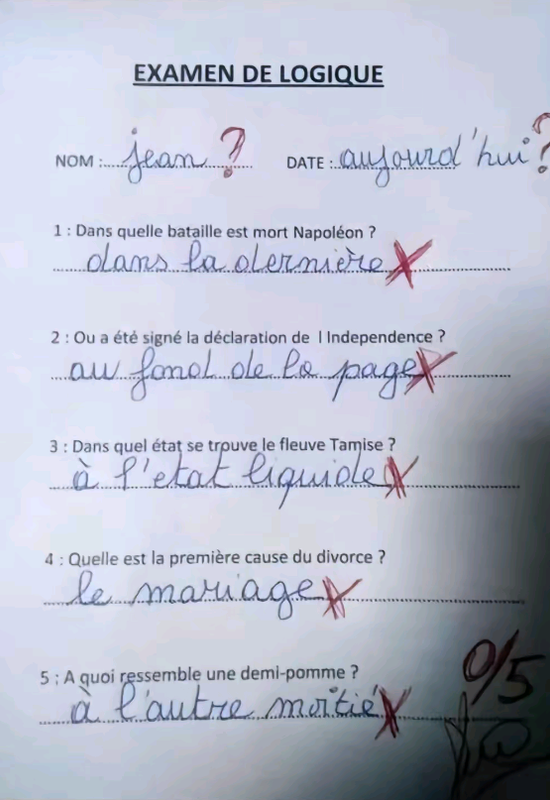 EXAMEN DE LOGIQUE
NOM :....jean ? DATE :..aujourd'hui ?
1 : Dans quelle bataille est mort Napoléon ?
dans la dernière
2 : Ou a été signé la déclaration de l Independence ?
au fond de la page
3 : Dans quel état se trouve le fleuve Tamise ?
à l'etat liquide
4 : Quelle est la première cause du divorce ?
le mariage
5 : A quoi ressemble une demi-pomme ?
à l'autre moitié
0/5